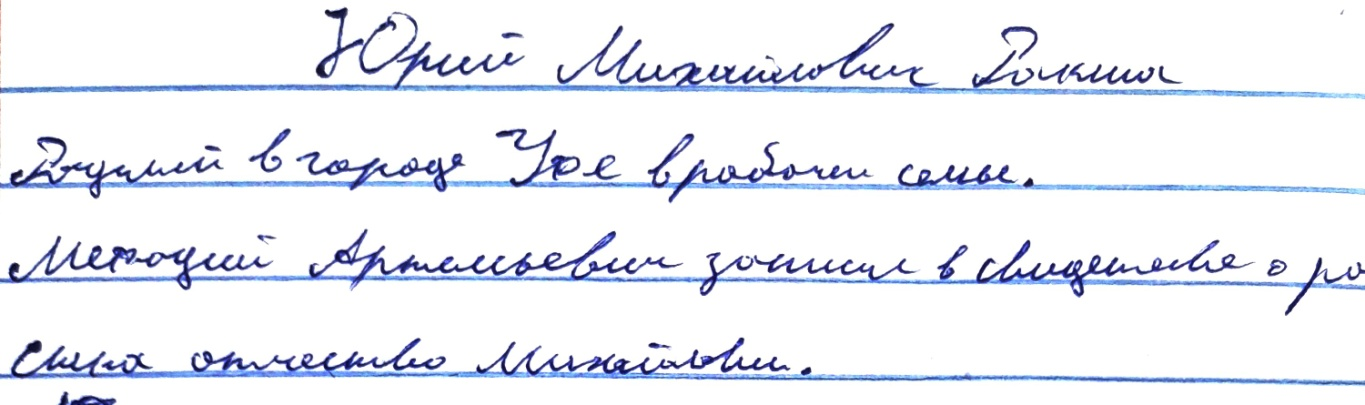 Юрий Михайлович Ракша
в городе Уфе в рабочей семье.
Мефодий Артемьевич записал в свидетельстве о ро
сына отчество Михайлович.